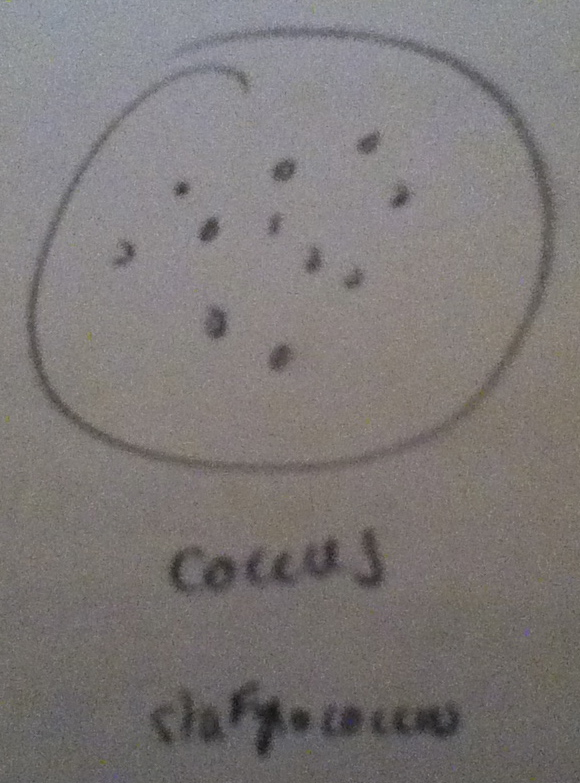 coccus
stafylococcus